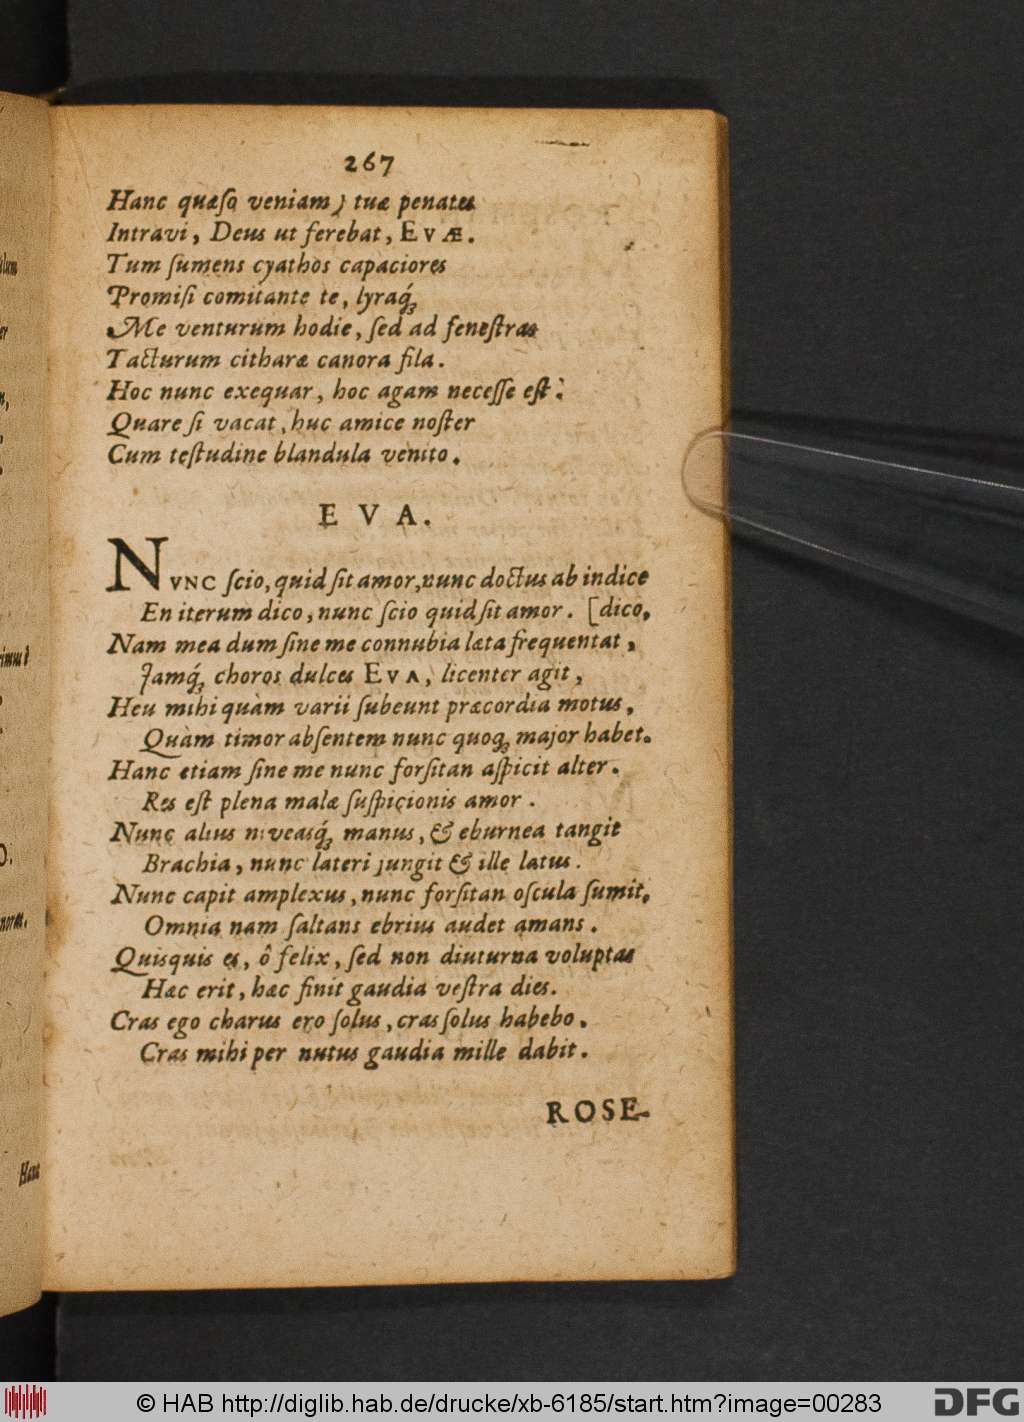 267
Hanc quæso veniam) tuæ penates
Intravi, Deus ut ferebat, EVÆ.
Tum sumens cyathos capaciores
Promisi comitante te, lyraq́;
Me venturum hodie, sed ad fenestras
Tacturum citharæ canora fila.
Hoc nunc exequar, hoc agam necesse est:
Quare si vacat, huc amice noster
Cum testudine blandula venito.
EVA.
NVNC scio, quid sit amor, nunc doctus ab indice
En iterum dico, nunc scio quid sit amor. [dico,
Nam mea dum sine me connubia læta frequentat,
Jamq́; choros dulces EVA, licenter agit,
Heu mihi quàm varii subeunt præcordia motus,
Quàm timor absentem nunc quoq; major habet.
Hanc etiam sine me nunc forsitan aspicit alter.
Res est plena malæ suspicionis amor.
Nunc alius niveasq́; manus, & eburnea tangit
Brachia, nunc lateri jungit & ille latus.
Nunc capit amplexus, nunc forsitan oscula sumit,
Omnia nam saltans ebrius audet amans.
Quisquis es, ô felix, sed non diuturna voluptas
Hæc erit, hæc finit gaudia vestra dies.
Cras ego charus ero solus, cras solus habebo,
Cras mihi per nutus gaudia mille dabit.
ROSE-
Hanc
© HAB http://diglib.hab.de/drucke/xb-6185/start.htm?image=00283
DFG